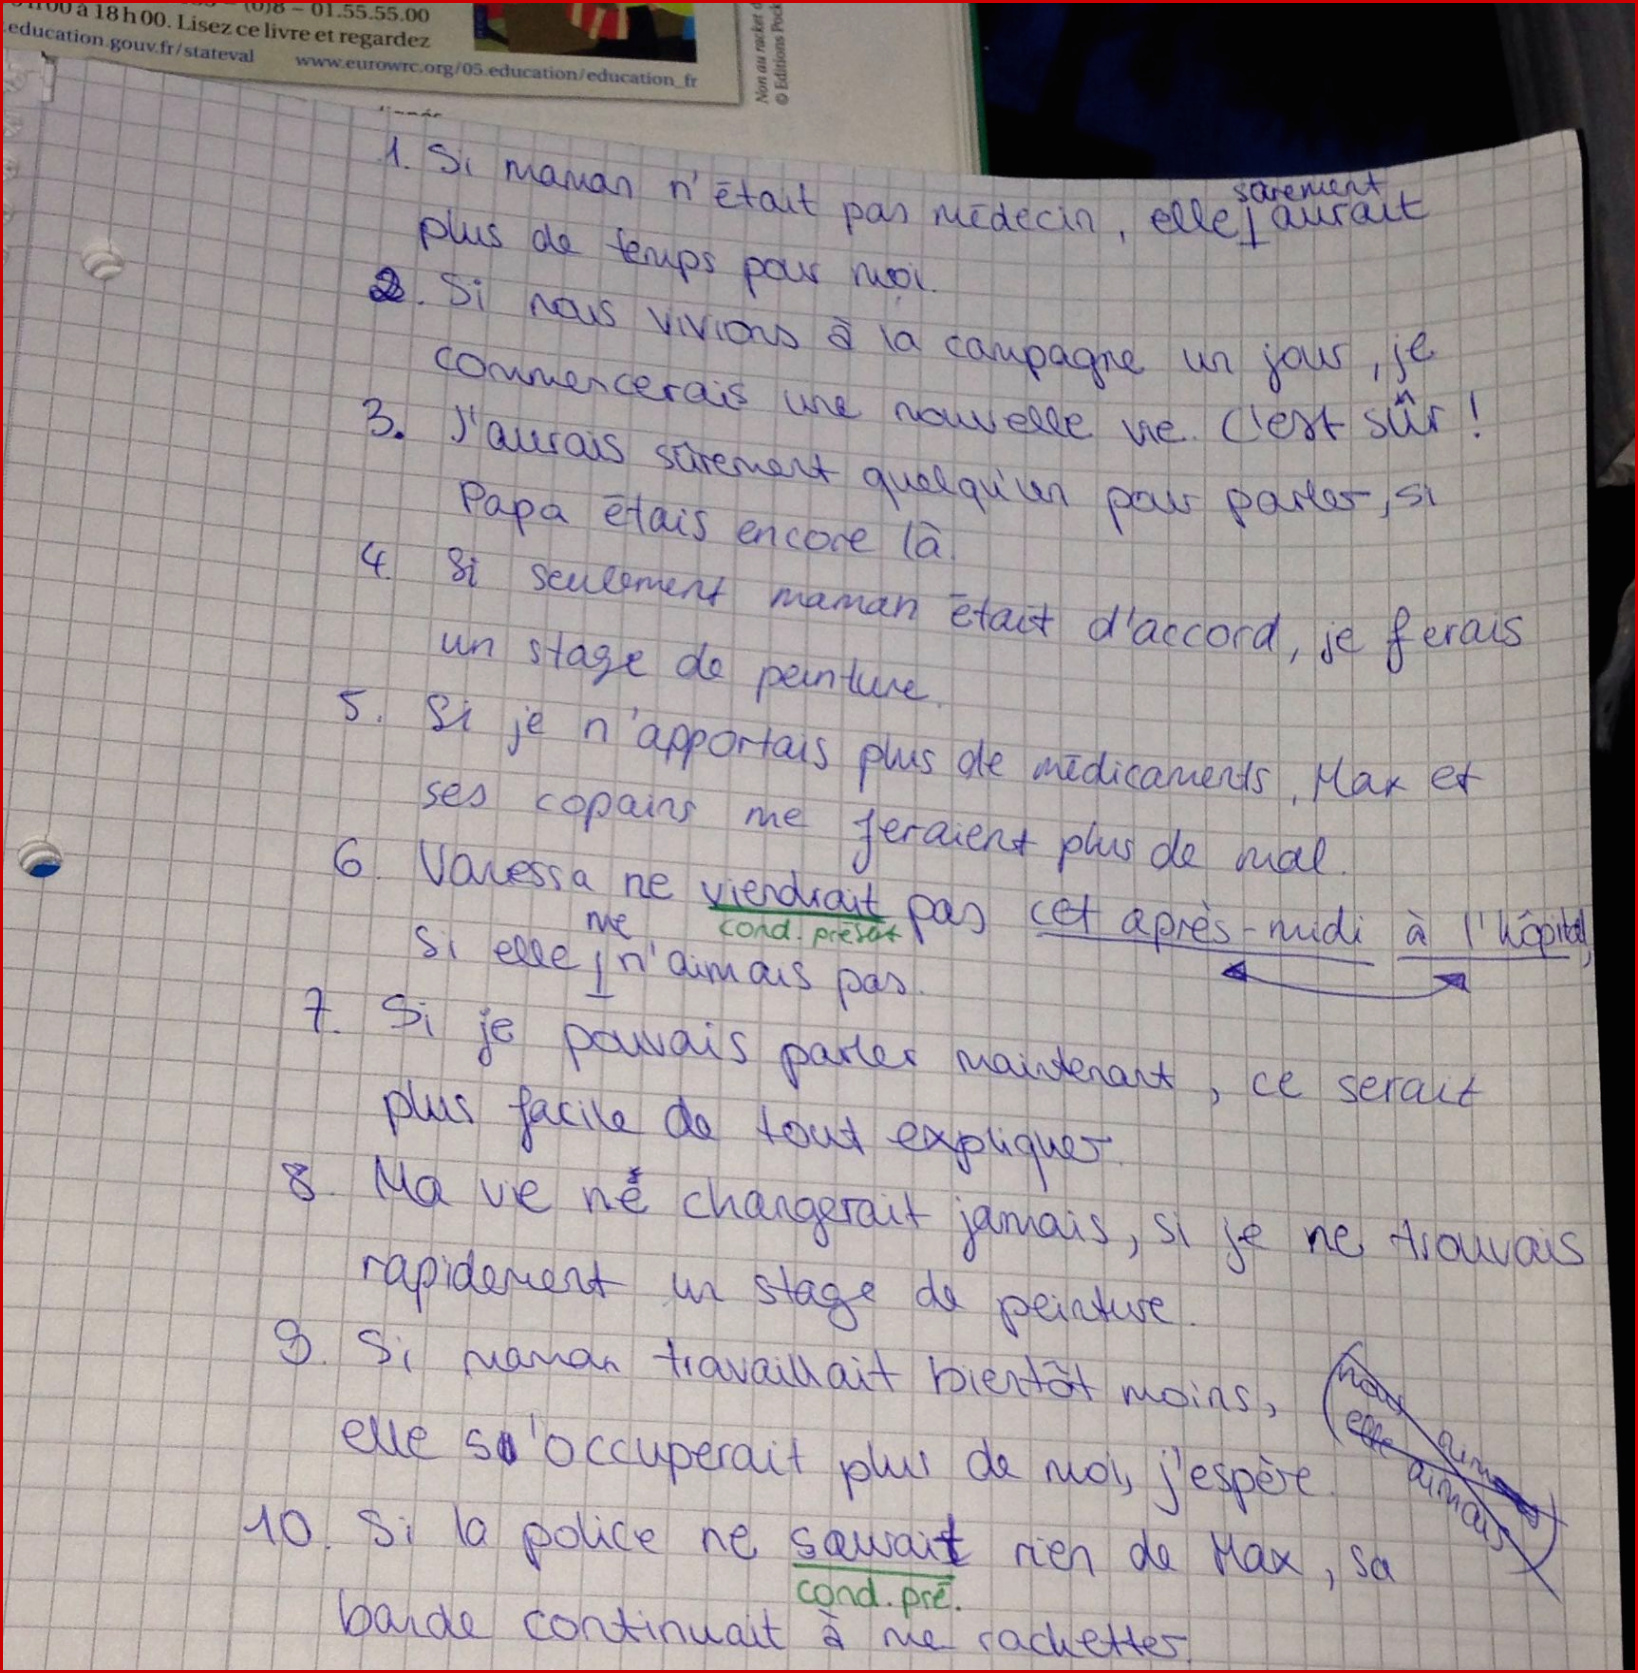 à 18h00. Lisez ce livre et regardez
(0)8 – 01.55.55.00
.education.gouv.fr/stateval
www.eurowrc.org/05.education/education_fr
Non au racket
© Editions Pock
1. Si maman n'était pas médecin, elle sûrement aurait
plus de temps pour moi.
2. Si nous vivions à la campagne un jour, je
commencerais une nouvelle vie. C'est sûr !
3. J'aurais sûrement quelqu'un pour parler, si
Papa étais encore là.
4. Si seulement maman était d'accord, je ferais
un stage de peinture.
5. Si je n'apportais plus de médicaments, Max et
ses copains me feraient plus de mal.
6. Vanessa ne viendrait pas cet après-midi à l'hôpital,
cond. présent
si elle me n'aimais pas.
7. Si je pouvais parler maintenant, ce serait
plus facile de tout expliquer.
8. Ma vie ne changerait jamais, si je ne trouvais
rapidement un stage de peinture.
9. Si maman travaillait bientôt moins,
elle s'occuperait plus de moi, j'espère.
nous
elle aimais
10. Si la police ne saurait rien de Max, sa
cond. pré.
bande continuait à me racketter.